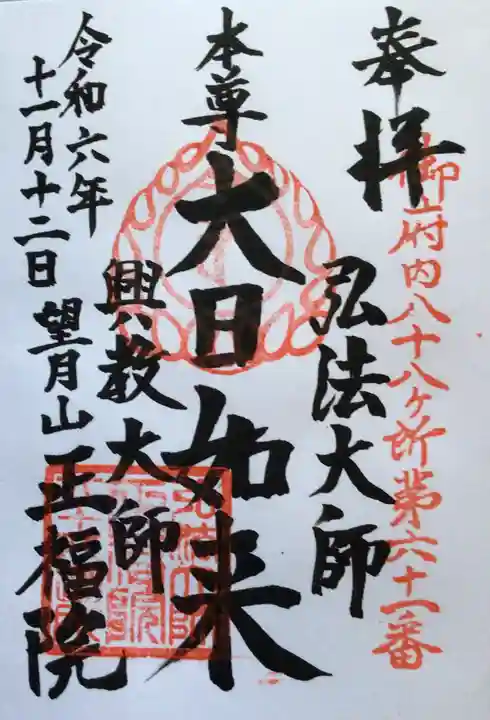 奉拝
御府内八十八ヶ所第六十一番
弘法大師
本尊 大日如来
興教大師
令和六年
十一月十二日
望月山 正福院